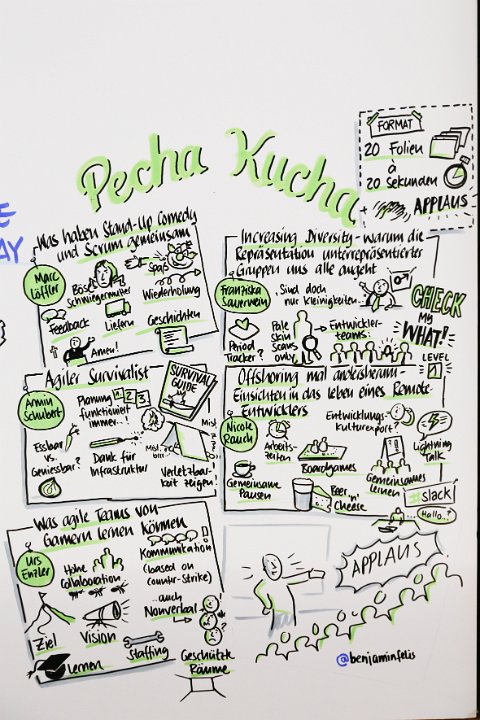 FORMAT
20 Folien
à
20 Sekunden
+ APPLAUS
Pecha Kucha
E
AY
Was haben Stand-Up Comedy
und Scrum gemeinsam
Marc
Löffler
Böse
Schwiegermutter
Spaß
Wiederholung
Feedback
Liefern
Geschichten
Amen!
Increasing Diversity - warum die
Repräsentation unterrepräsentierter
Gruppen uns alle angeht
Franziska
Sauerwein
Sind doch
nur Kleinigkeiten...
Period
Tracker?
Pale
Skin
Scans
only
Entwickler-
teams:
CHECK
MY
WHAT!
LEVEL
1
Agiler Survivalist
Armin
Schubert
Planung
funktioniert
immer...
1 2 3
SURVIVAL
GUIDE
Essbar
vs.
Geniessbar?
Dank für
Infrastruktur
Mist
Verletzbar-
keit zeigen!
Offshoring mal andersherum -
Einsichten in das Leben eines Remote
Entwicklers
Nicole
Rauch
Arbeits-
zeiten
Entwicklungs-
kulturexport?
Boardgames
Lightning
Talk
Gemeinsame
Pausen
Beer
'n'
Cheese
Gemeinsames
lernen
#slack
Hallo..?
Was agile Teams von
Gamern lernen können
Urs
Enzler
Hohe
Collaboration
Kommunikation
(based on
counter-strike)
...auch
Nonverbal
Ziel
Vision
Staffing
Lernen
Geschützte
Räume
APPLAUS
@benjaminfelis